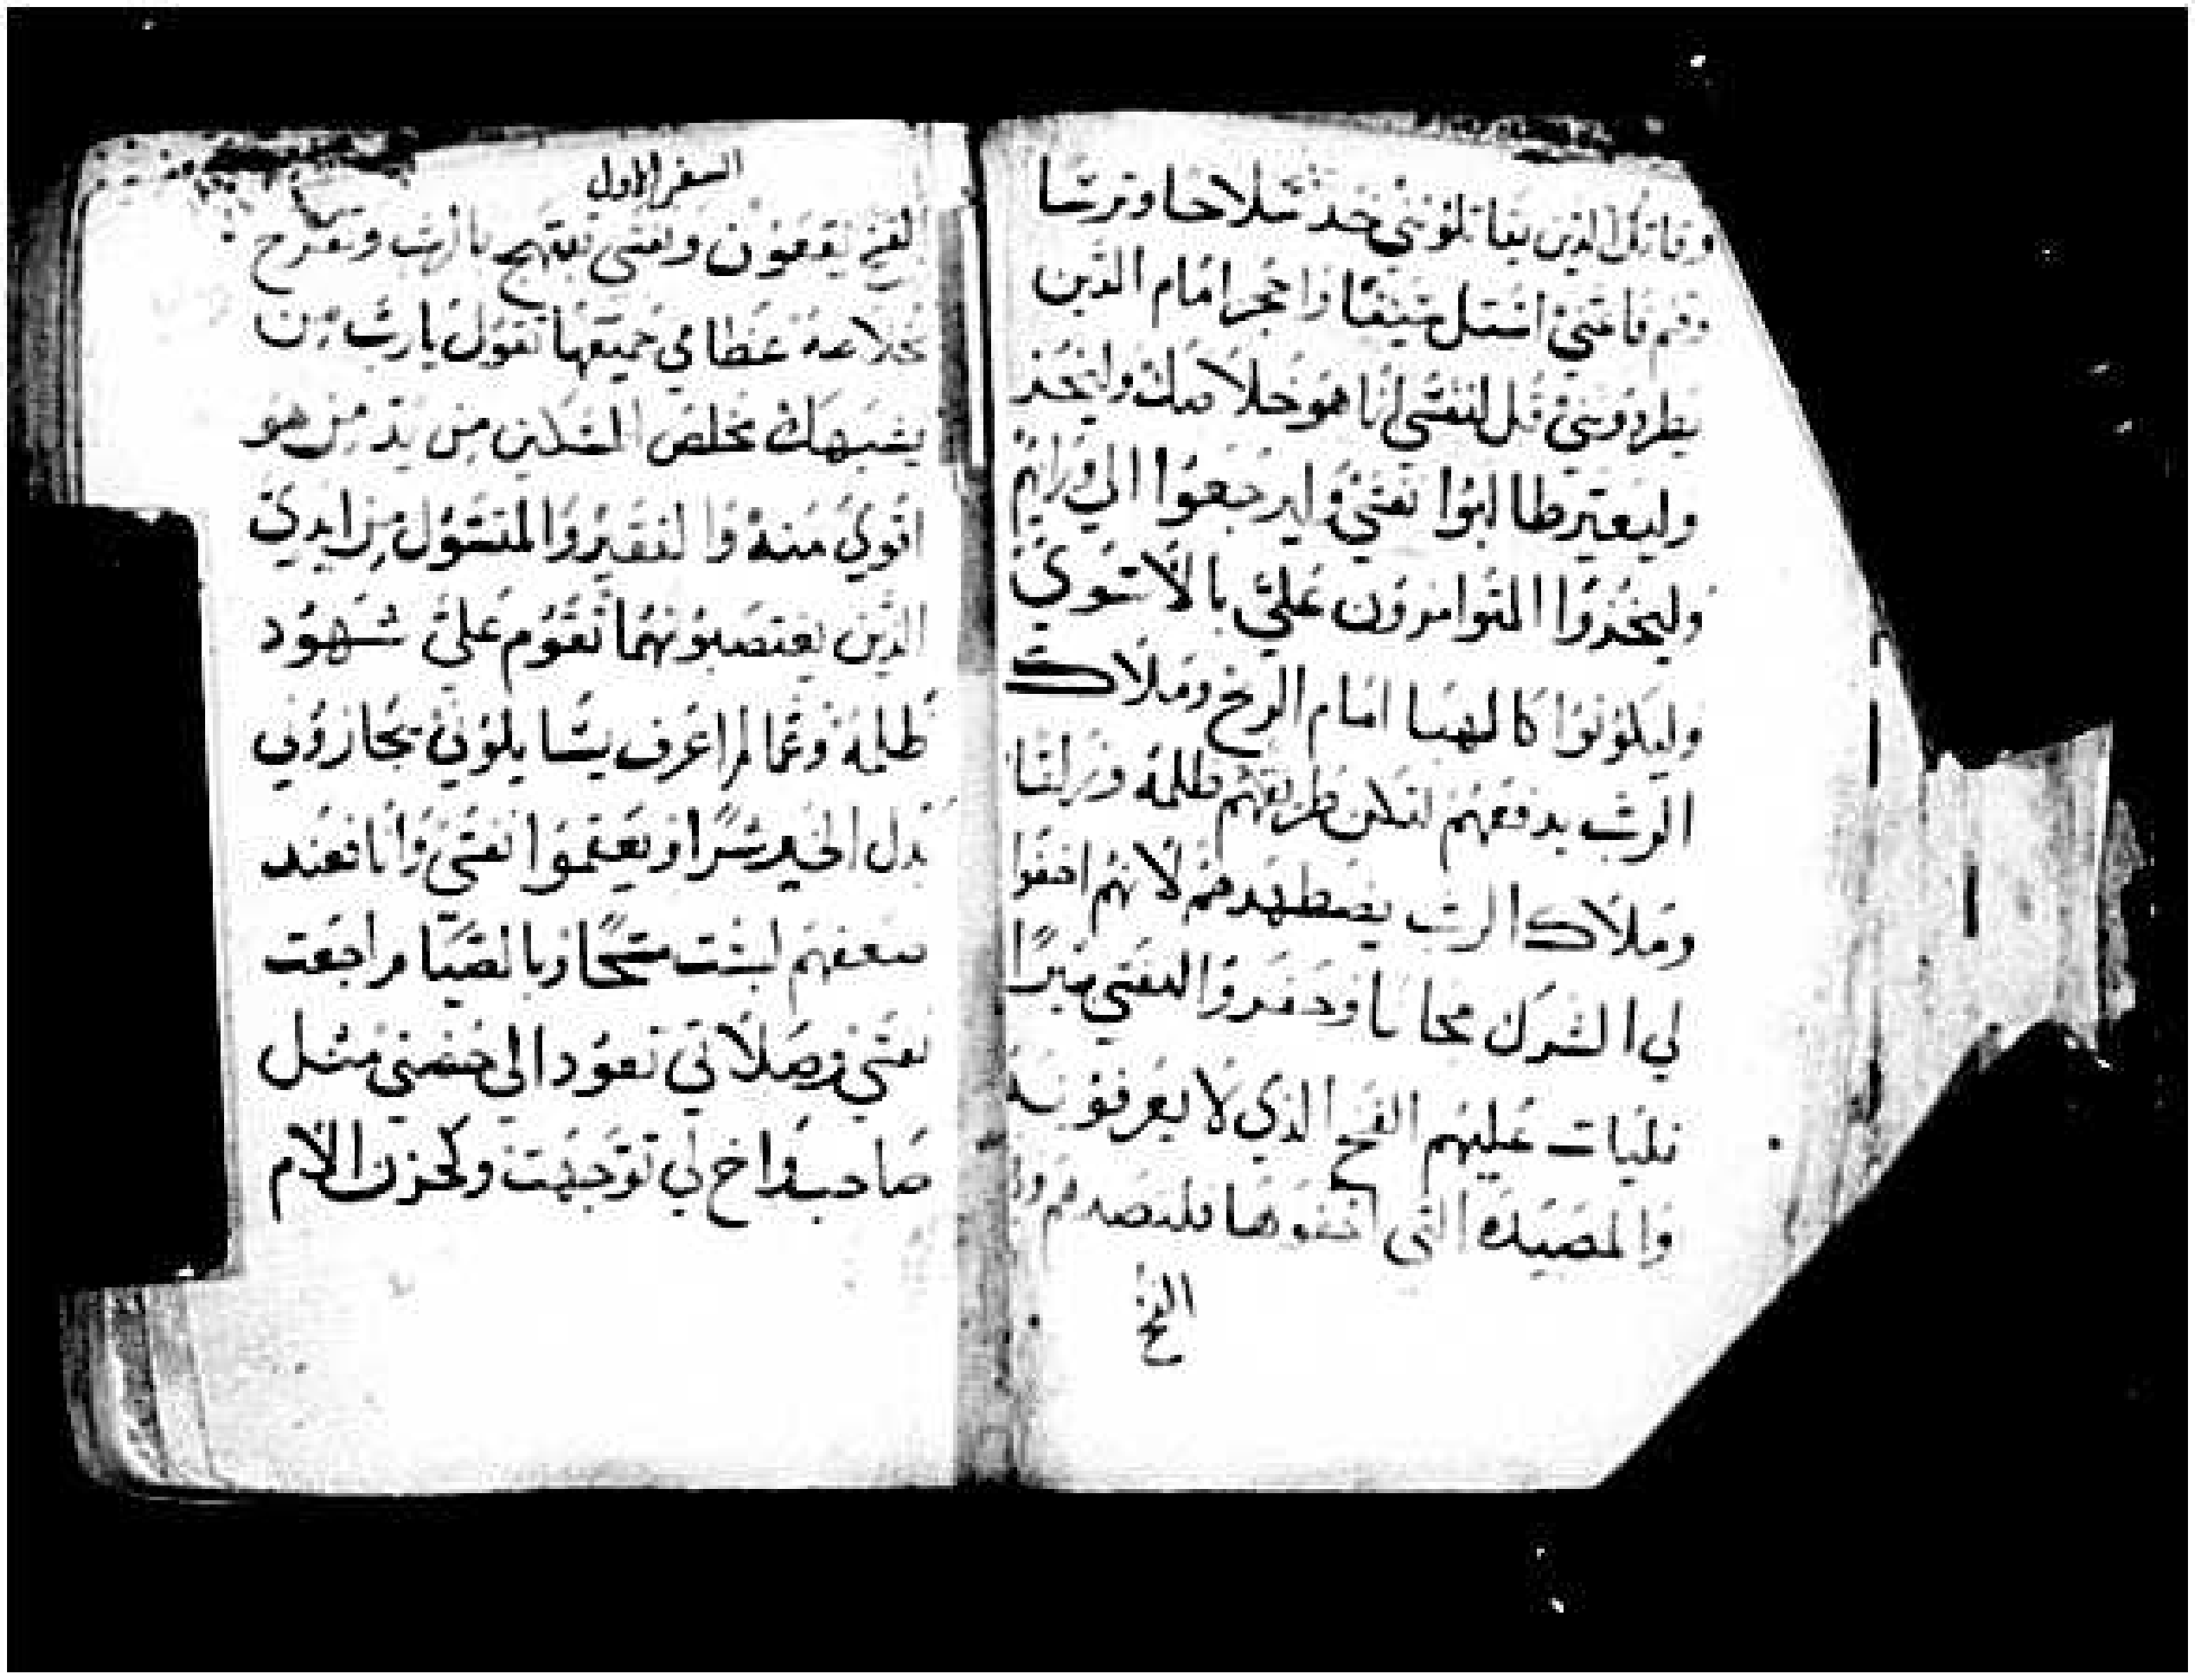 وقاتل الذين يقاتلونني خذ سلاحا وترسا
وقم فاعني استل سيفا واحجر امام الذين
يطردونني قل لنفسي انا هو خلاصك وليخذ
وليعير طالبوا نفسي وليرجعوا الي ورايم
وليخذوا المتوامرون علي بالاسوي
وليكونوا كالهبا امام الريح وملاك
الرب يدفعهم لتكن طريقهم ظلمه وزلقا
وملاك الرب يضطهدهم لانهم اخفوا
لي الشرك مجانا وحفروا لنفسي
فليات عليهم الفخ الذي لا يعرفونه
والمصيده التي اخفوها فلتصدهم وفي
الفخ
السفر الاول
الفخ يقعون ونفسي تبتهج بالرب وتفرح
بخلاصه عظامي جميعها تقول يا رب من
يشبهك مخلص المسكين من يد من هو
اقوي منه والفقير والمسول من ايدي
الذين يغتصبونهما تقوم علي شهود
ظلمه وعما لم اعرف يسايلوني يجازوني
بدل الخير شرا ويعقموا نفسي وانا فعند
ضعفهم لبست مسحا وبالصيام راجعت
نفسي وصلاتي تعود الي حضني مثل
صاحب واخ لي توجهت وكحزن الام